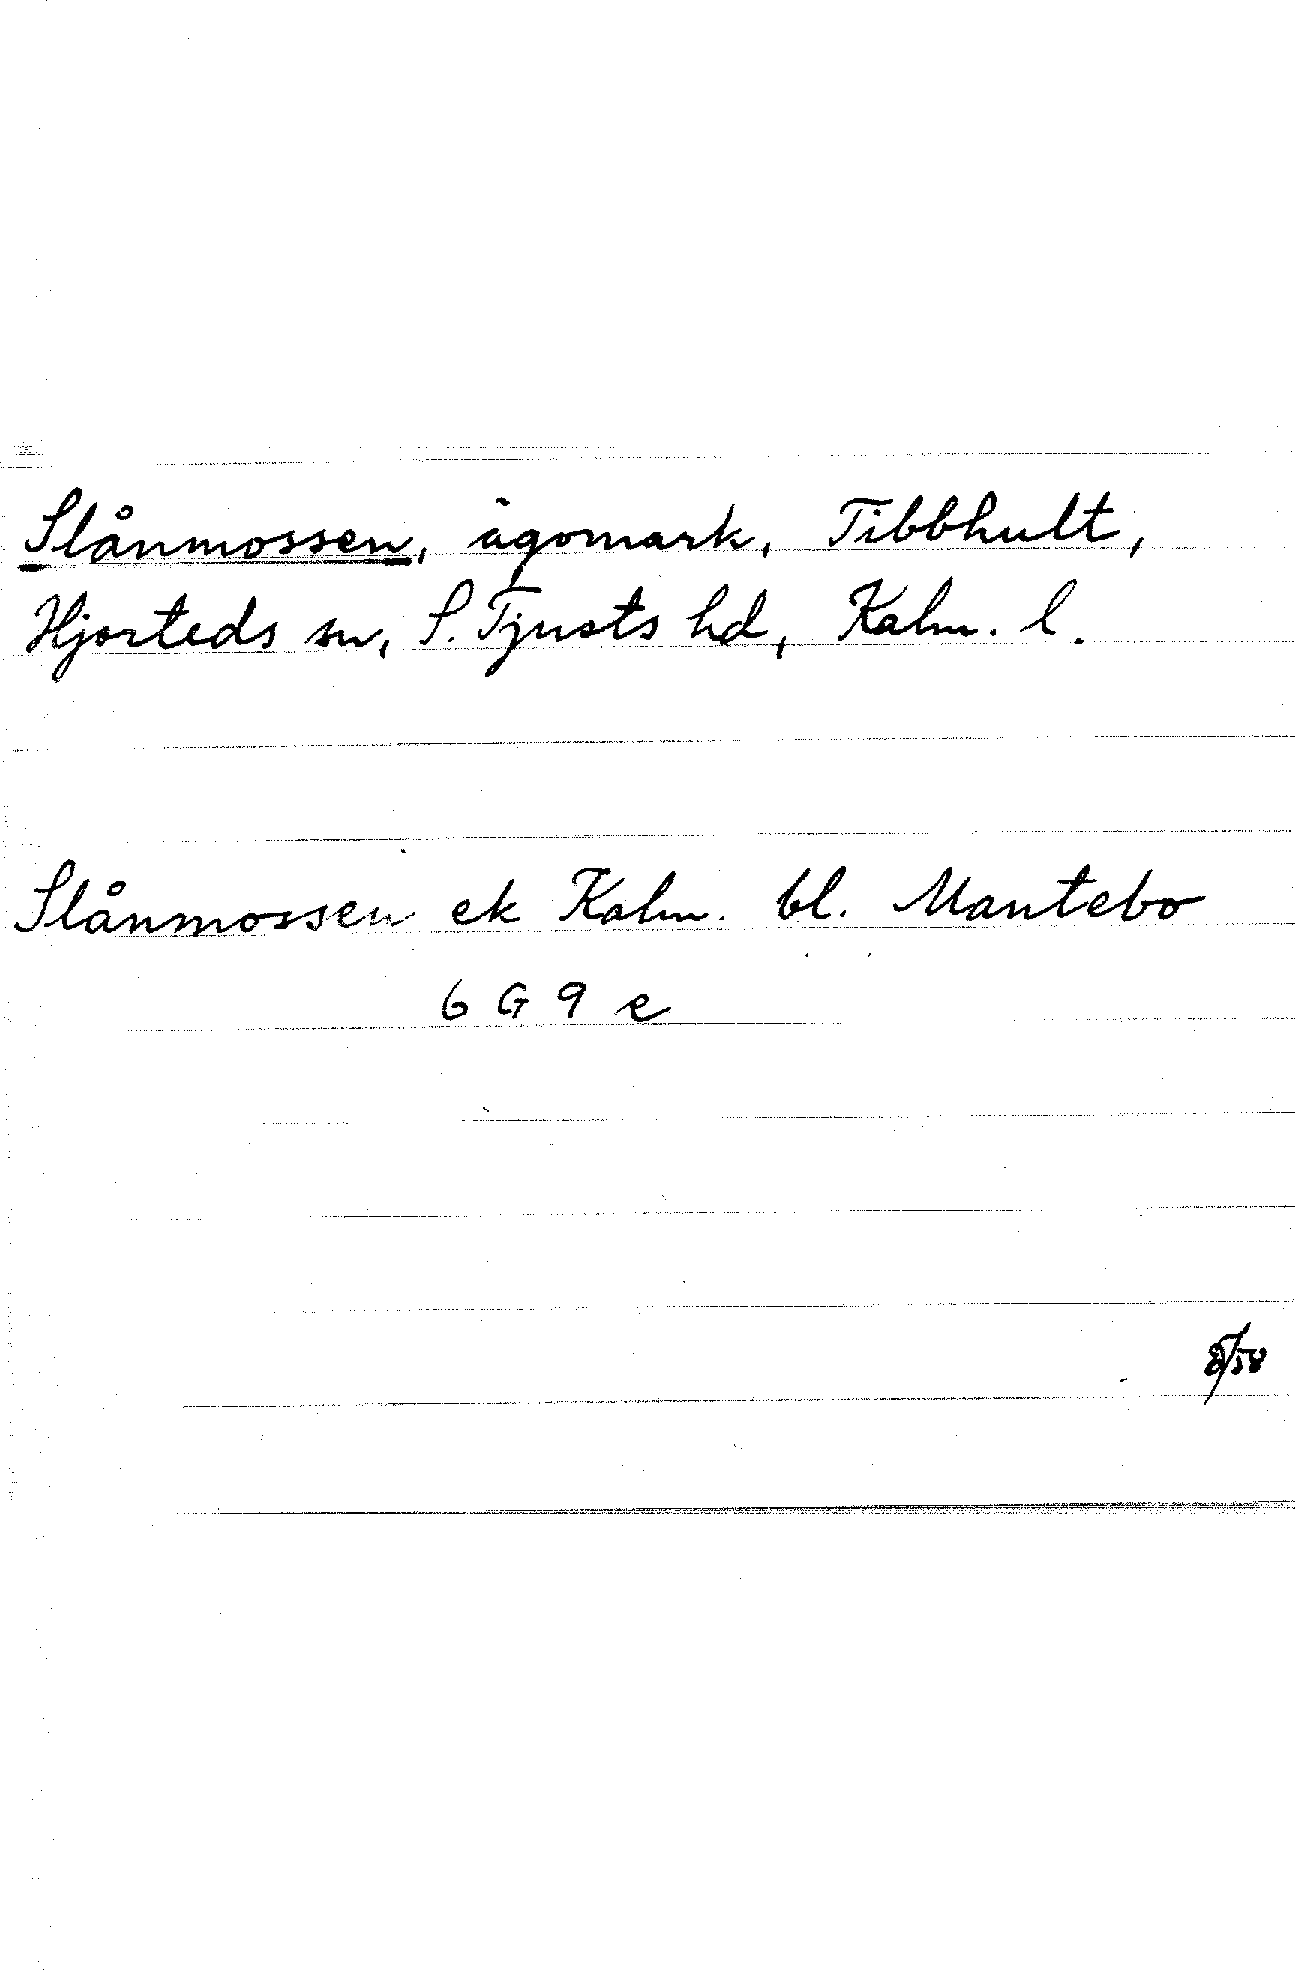 Slånmossen, ägomark, Tibbhult,
Hjorteds sn, S. Tjusts hd, Kalm. l.
Slånmossen ek Kalm. bl. Mantebo
6 G 9 e